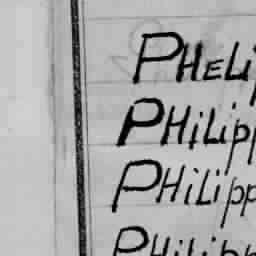 PHELi
PHiLipp
PHiLipp
PHiLipp